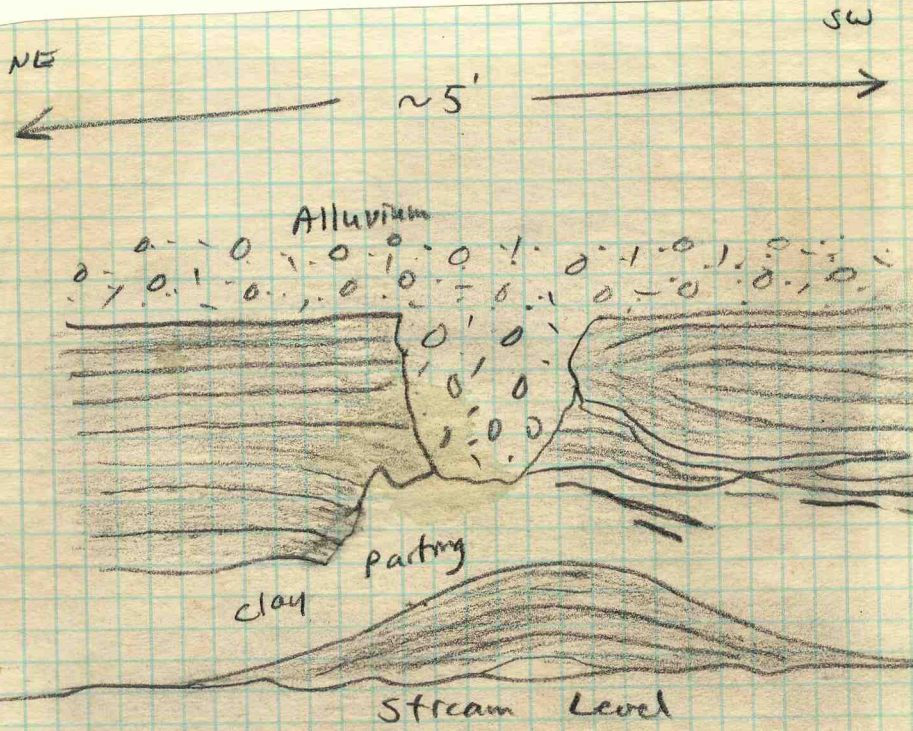 NE
SW
~5'
Alluvium
parting
clay
Stream Level